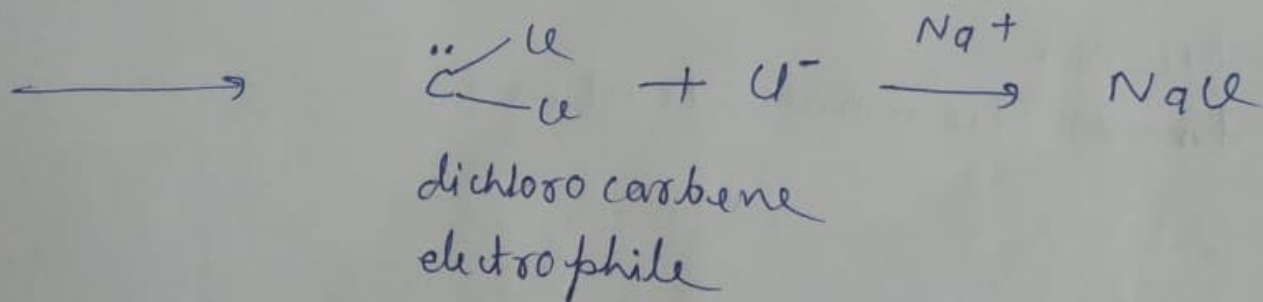 Cl Na+
⟶ :C + Cl⁻ ⟶ NaCl
Cl
dichloro carbene
electrophile